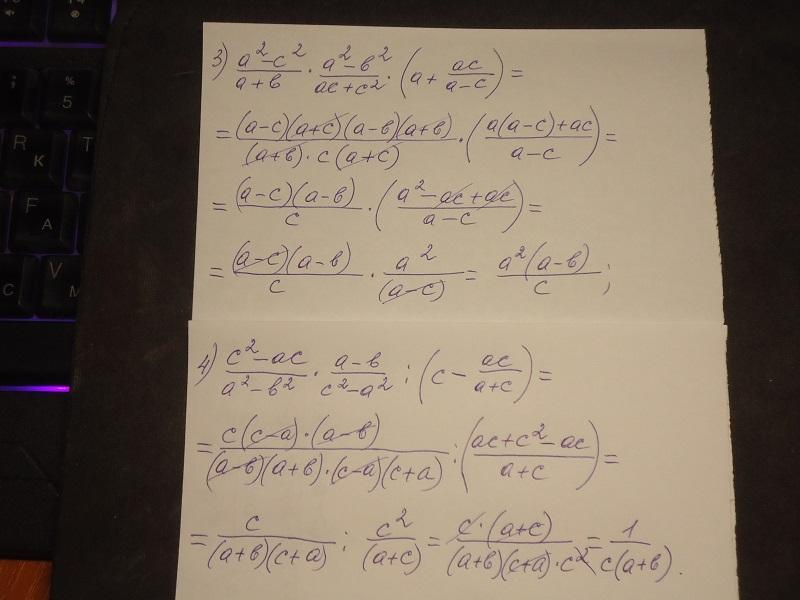 %
5
R
K
T
F
A
C
V
M
3) (a²-c²)/(a+b) · (a²-b²)/(ac+c²) · (a + ac/(a-c)) =
= ((a-c)(a+c)(a-b)(a+b))/((a+b)·c(a+c)) · ((a(a-c)+ac)/(a-c)) =
= ((a-c)(a-b))/c · ((a²-ac+ac)/(a-c)) =
= ((a-c)(a-b))/c · a²/(a-c) = (a²(a-b))/c ;
4) (c²-ac)/(a²-b²) · (a-b)/(c²-a²) : (c - ac/(a+c)) =
= (c(c-a)·(a-b))/((a-b)(a+b)·(c-a)(c+a)) : ((ac+c²-ac)/(a+c)) =
= c/((a+b)(c+a)) : c²/(a+c) = (c·(a+c))/((a+b)(c+a)·c²) = 1/(c(a+b)).